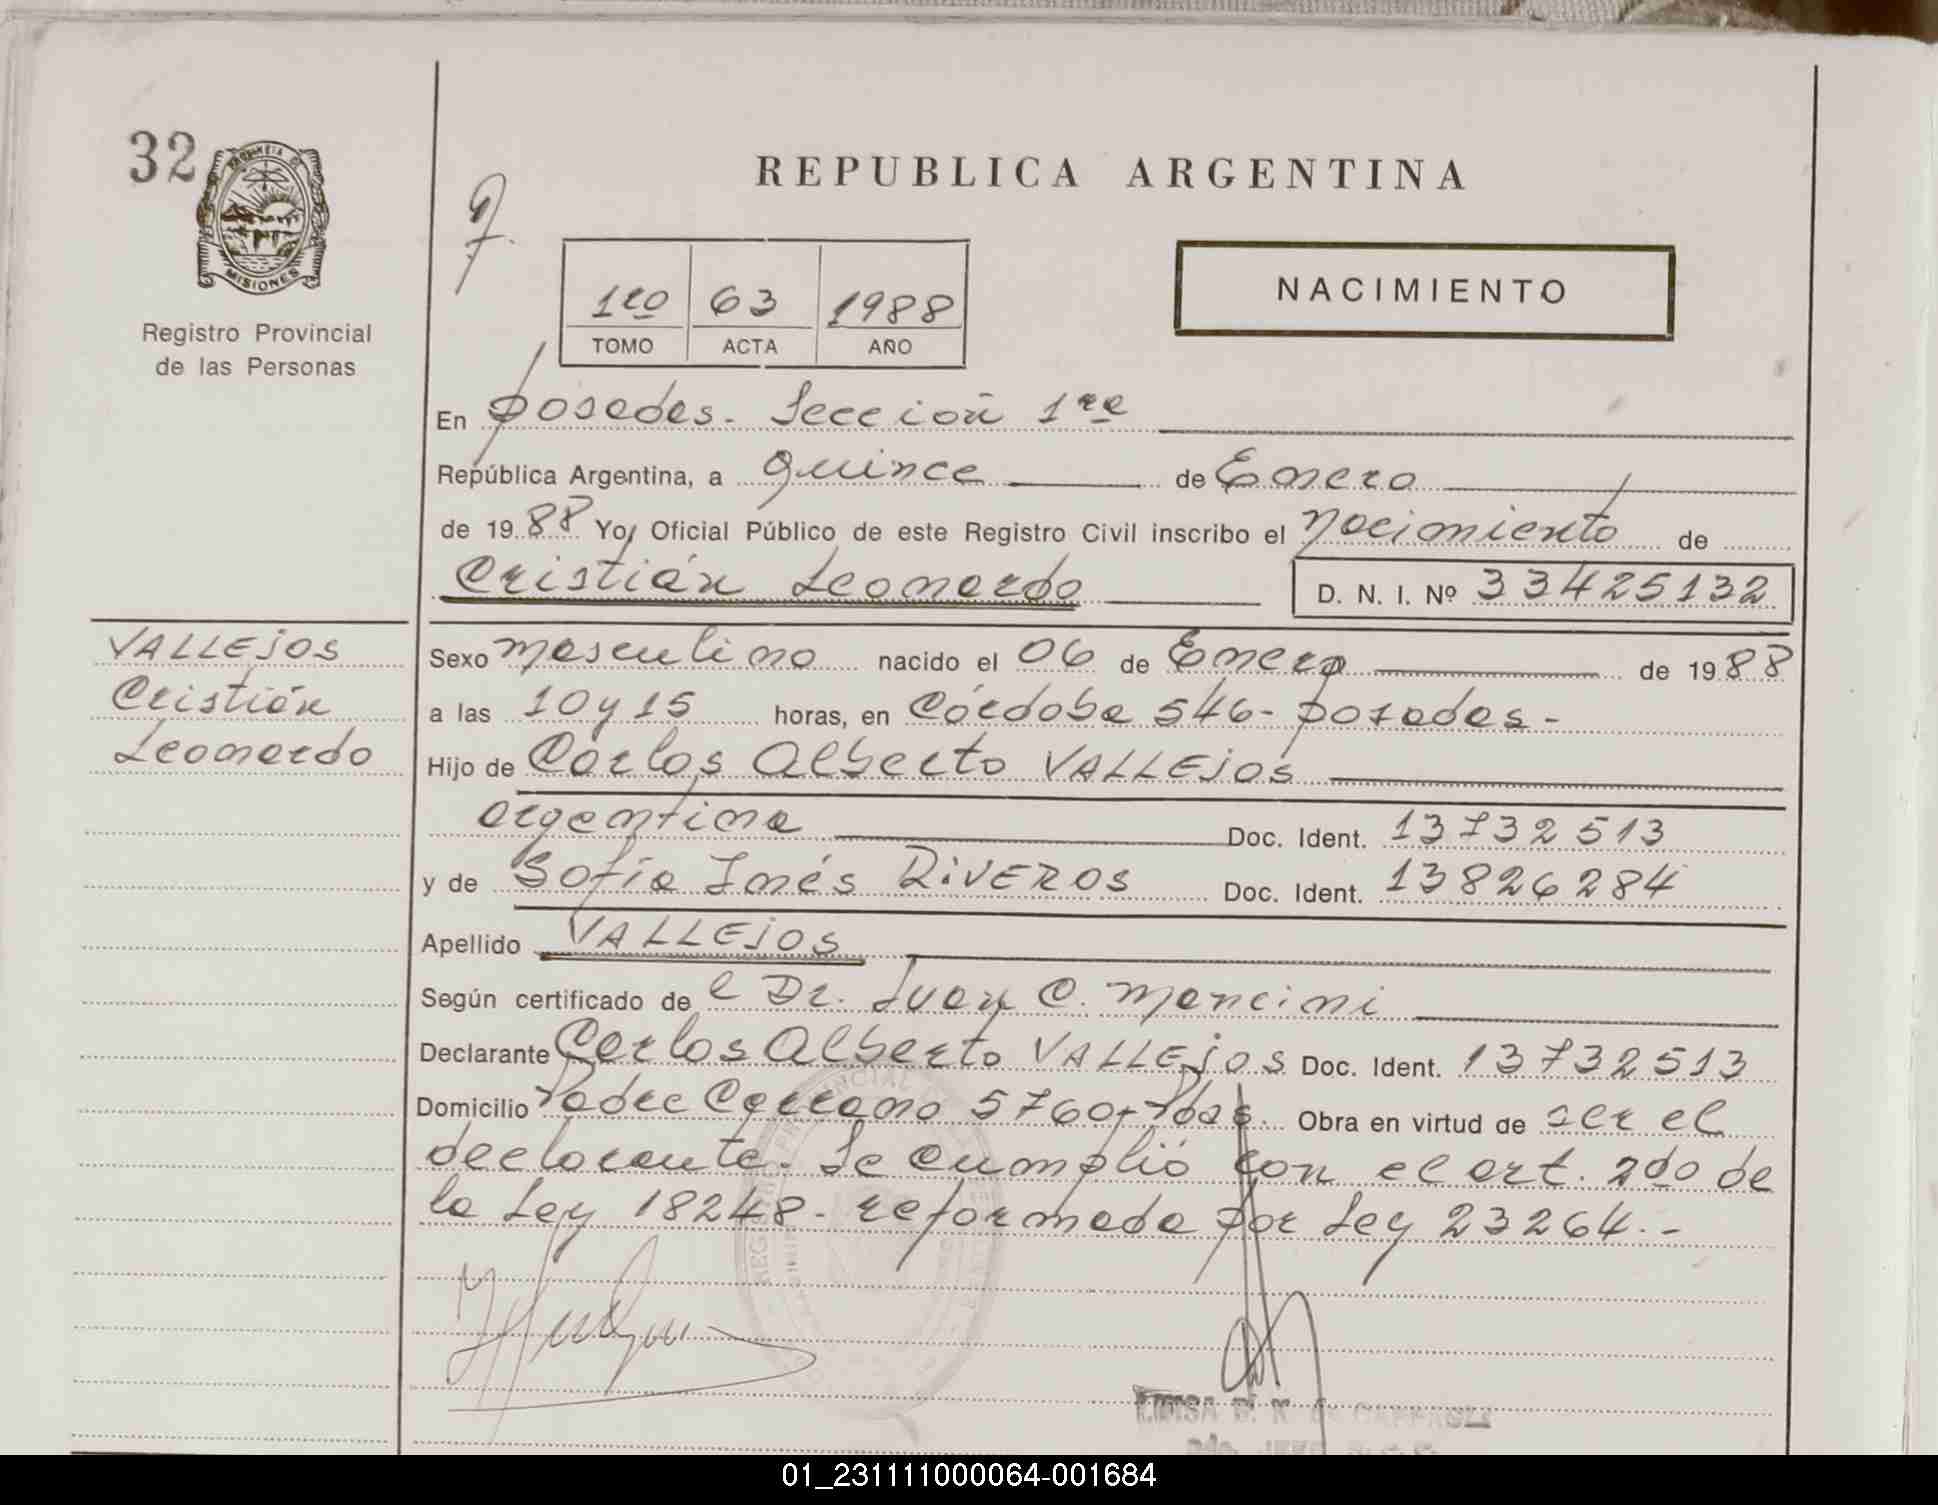 32
PROVINCIA DE
MISIONES
Registro Provincial
de las Personas
REPUBLICA ARGENTINA
NACIMIENTO
1ro 63 1988
TOMO ACTA AÑO
En Posadas. Sección 1ra
República Argentina, a quince de Enero
de 1988 Yo, Oficial Público de este Registro Civil inscribo el Nacimiento de
Cristián Leonardo D. N. I. Nº 33425132
VALLEJOS
Cristián
Leonardo
Sexo masculino nacido el 06 de Enero de 1988
a las 10 y 15 horas, en Córdoba 546- Posadas-
Hijo de Carlos Alberto VALLEJOS
argentina Doc. Ident. 13732513
y de Sofía Inés RIVEROS Doc. Ident. 13826284
Apellido VALLEJOS
Según certificado de el Dr. Juan C. Mancini
Declarante Carlos Alberto VALLEJOS Doc. Ident. 13732513
Domicilio Padre Serrano 5760- Pdas. Obra en virtud de ser el
declarante. Se cumplió con el art. 2do de
la Ley 18248- reformada por Ley 23264.-
01_231111000064-001684